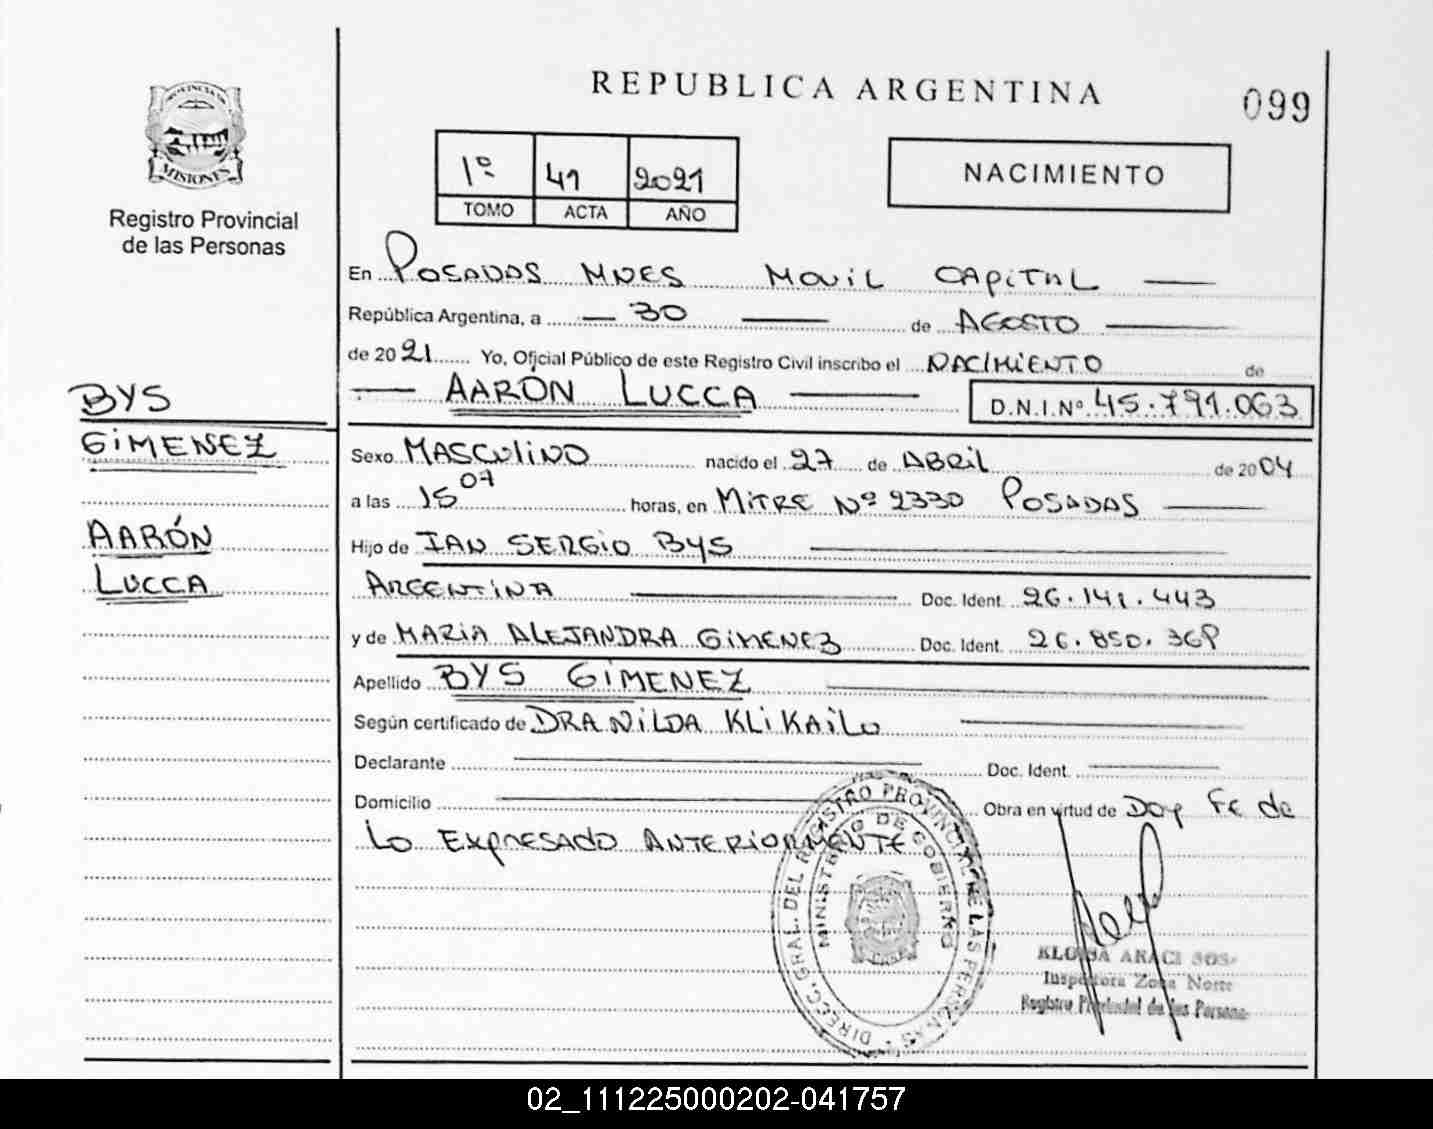 REPUBLICA ARGENTINA
099
PROVINCIA DE
MISIONES
Registro Provincial
de las Personas
1º 41 2021
TOMO ACTA AÑO
NACIMIENTO
En POSADAS MNES MOVIL CAPITAL
República Argentina, a 30 de AGOSTO
de 2021 Yo, Oficial Público de este Registro Civil inscribo el NACIMIENTO de
AARÓN LUCCA D.N.I.Nº 45.791.063
BYS
GIMENEZ
AARÓN
LUCCA
Sexo MASCULINO nacido el 27 de ABRIL de 2004
a las 15 07 horas, en MITRE Nº 2330 POSADAS
Hijo de IAN SERGIO BYS
ARGENTINA Doc. Ident. 26.141.443
y de MARIA ALEJANDRA GIMENEZ Doc. Ident. 26.850.368
Apellido BYS GIMENEZ
Según certificado de DRA NILDA KLIKAILO
Declarante Doc. Ident.
Domicilio Obra en virtud de Doy Fe de
LO EXPRESADO ANTERIORMENTE
DIREC. GRAL. DEL REGISTRO PROVINCIAL DE LAS PERSONAS
MINISTERIO DE GOBIERNO
ARACI
Inspectora Zona Norte
Registro Provincial de las Personas
02_111225000202-041757